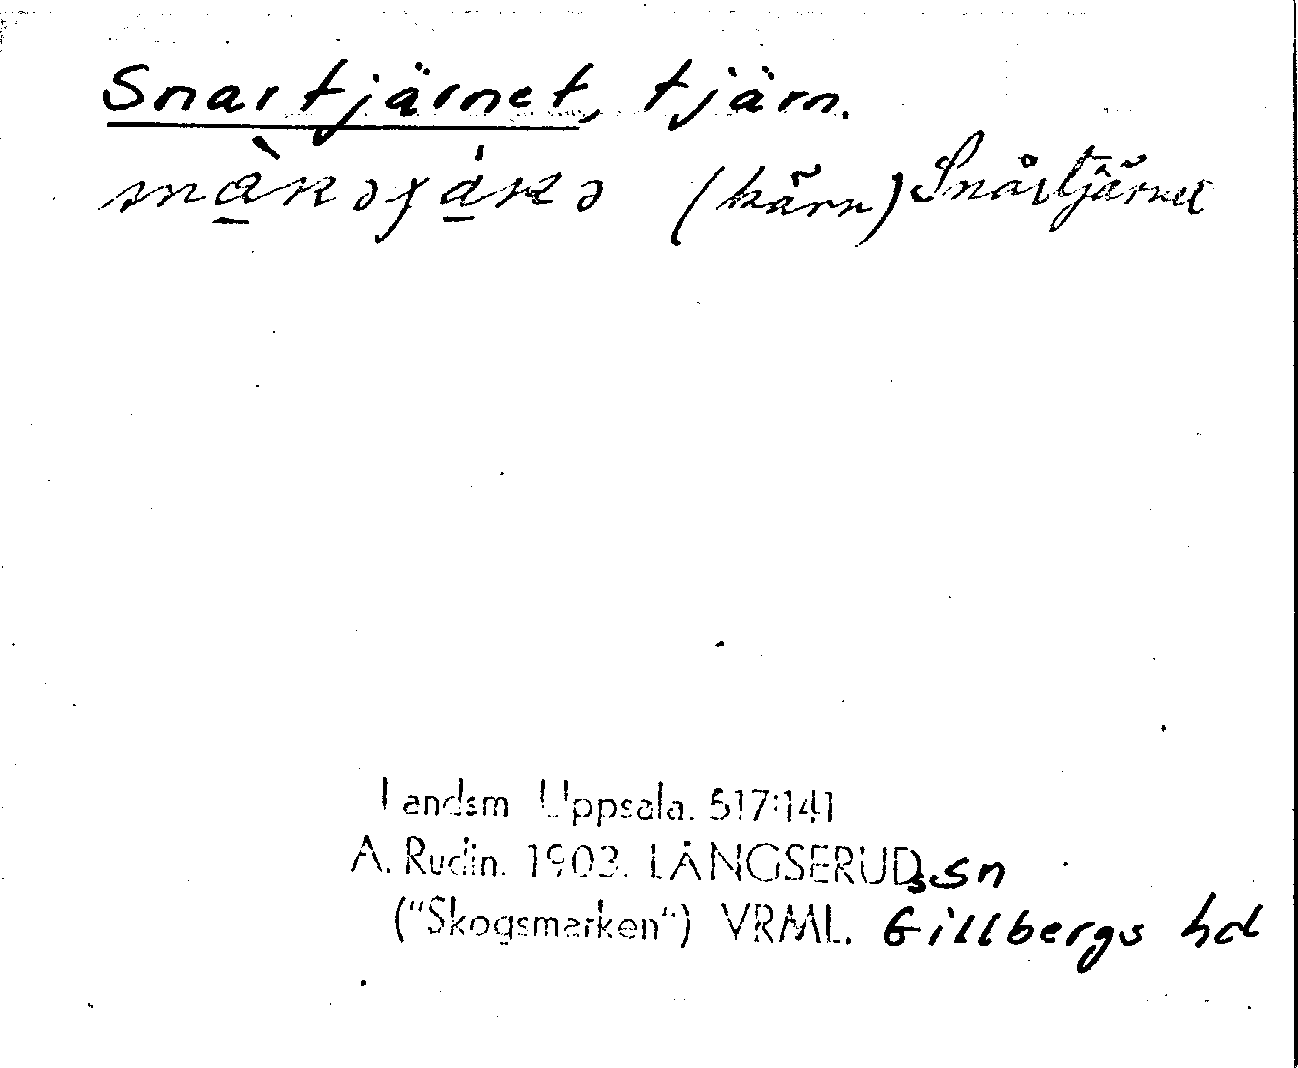 Snartjärnet, tjärn.
(kärn) Snårtjärnet
Landsm Uppsala. 517:141
A. Rudin. 1903. LÅNGSERUDs sn
("Skogsmarken") VRML. Gillbergs hd